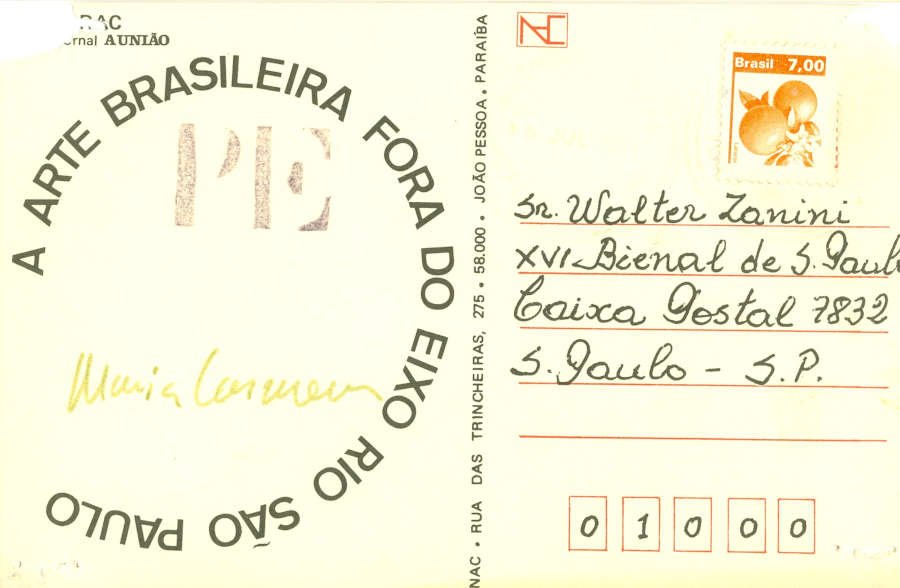 RAC
rnal A UNIÃO
A ARTE BRASILEIRA FORA DO EIXO RIO SÃO PAULO
PE
Maria
NAC • RUA DAS TRINCHEIRAS, 275 • 58.000 • JOÃO PESSOA • PARAÍBA
NAC
Brasil 7,00
Laranja
Sr. Walter Zanini
XVI Bienal de S. Paulo
Caixa Postal 7832
S. Paulo - S.P.
0 1 0 0 0